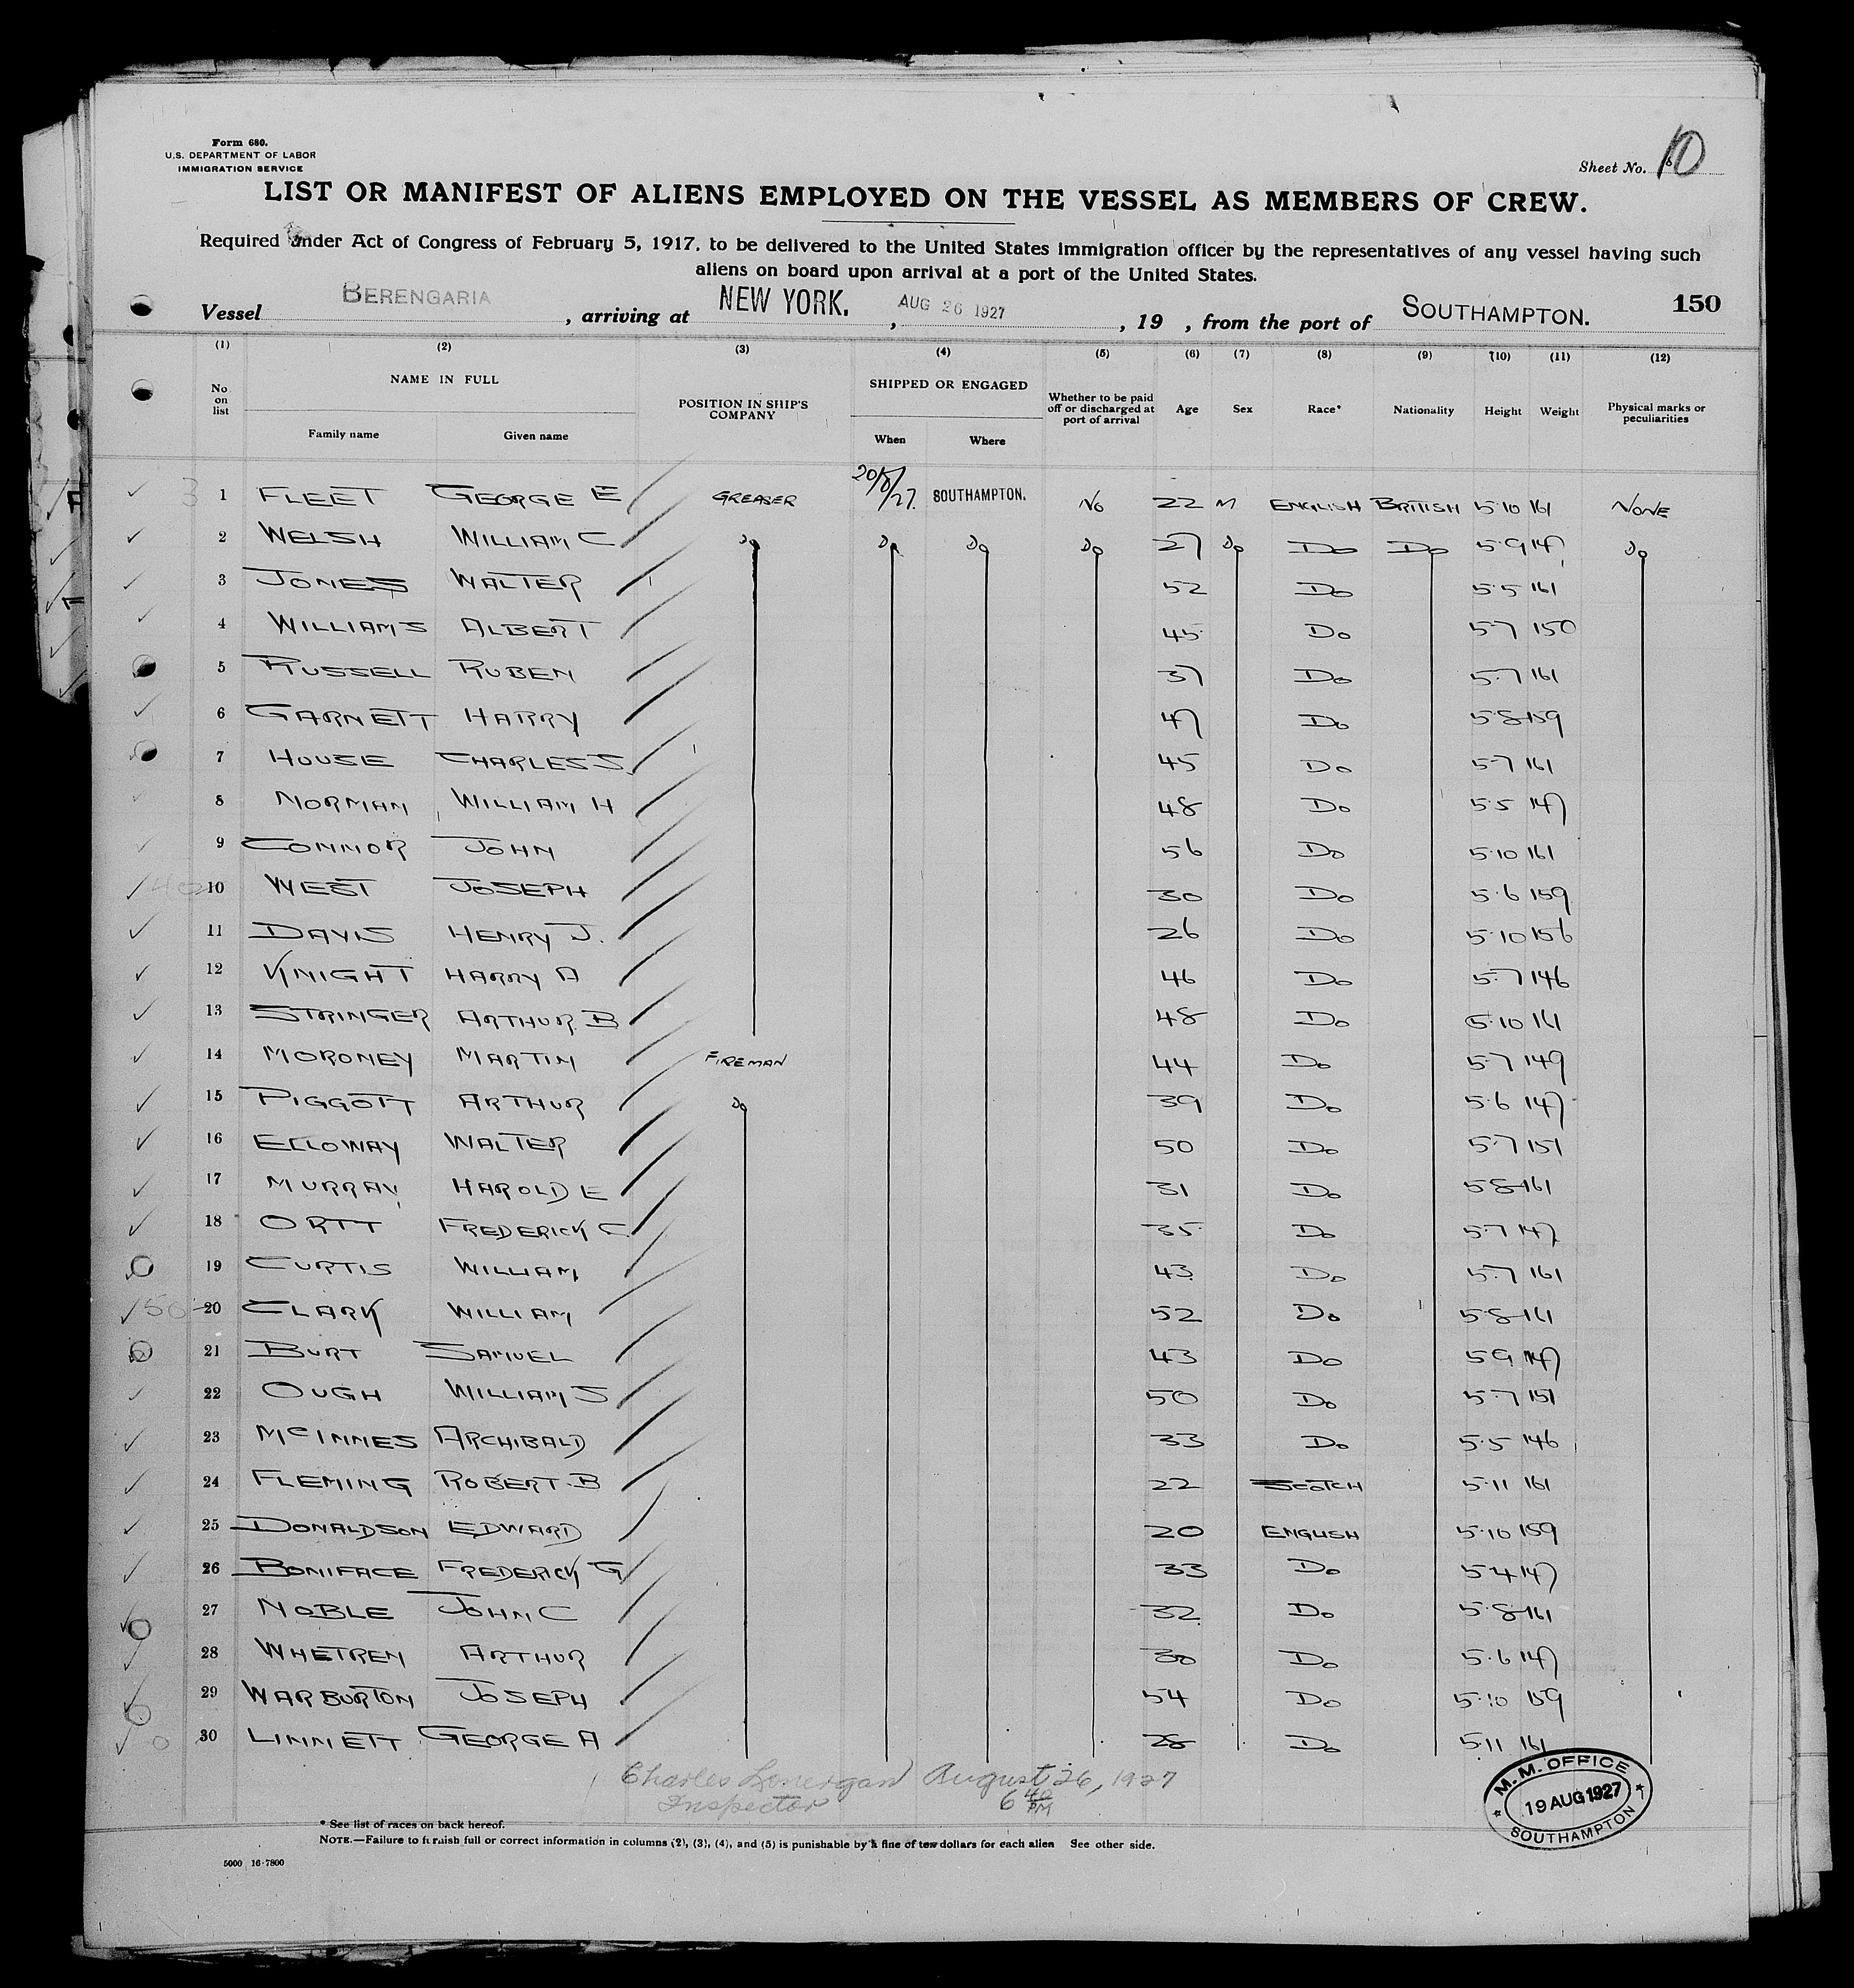 Form 680.
U.S. DEPARTMENT OF LABOR
IMMIGRATION SERVICE
Sheet No. 10
LIST OR MANIFEST OF ALIENS EMPLOYED ON THE VESSEL AS MEMBERS OF CREW.
Required under Act of Congress of February 5, 1917, to be delivered to the United States immigration officer by the representatives of any vessel having such
aliens on board upon arrival at a port of the United States.
Vessel BERENGARIA, arriving at NEW YORK., AUG 26 1927, 19 , from the port of SOUTHAMPTON. 150
(1) (2) (3) (4) (5) (6) (7) (8) (9) (10) (11) (12)
No on list NAME IN FULL Family name Given name POSITION IN SHIP'S COMPANY SHIPPED OR ENGAGED When Where Whether to be paid off or discharged at port of arrival Age Sex Race* Nationality Height Weight Physical marks or peculiarities
1 FLEET GEORGE E GREASER 20/8/27. SOUTHAMPTON. NO 22 M ENGLISH BRITISH 5·10 161 NONE
2 WELSH WILLIAM C Do Do Do Do 27 Do Do Do 5·9 147 Do
3 JONES WALTER 52 Do 5·5 161
4 WILLIAMS ALBERT 45 Do 5·7 150
5 RUSSELL RUBEN 37 Do 5·7 161
6 GARNETT HARRY 47 Do 5·8 159
7 HOUSE CHARLES S. 45 Do 5·7 161
8 NORMAN WILLIAM H 48 Do 5·5 147
9 CONNOR JOHN 56 Do 5·10 161
10 WEST JOSEPH 30 Do 5·6 159
11 DAVIS HENRY J. 26 Do 5·10 156
12 KNIGHT HARRY A 46 Do 5·7 146
13 STRINGER ARTHUR B 48 Do 5·10 161
14 MORONEY MARTIN FIREMAN 44 Do 5·7 149
15 PIGGOTT ARTHUR Do 39 Do 5·6 147
16 ELLOWAY WALTER 50 Do 5·7 151
17 MURRAY HAROLD E 31 Do 5·8 161
18 ORTT FREDERICK C 35 Do 5·7 147
19 CURTIS WILLIAM 43 Do 5·7 161
20 CLARK WILLIAM 52 Do 5·8 161
21 BURT SAMUEL 43 Do 5·9 147
22 OUGH WILLIAM S 50 Do 5·7 151
23 McINNES ARCHIBALD 33 Do 5·5 146
24 FLEMING ROBERT. B 22 SCOTCH 5·11 161
25 DONALDSON EDWARD 20 ENGLISH 5·10 159
26 BONIFACE FREDERICK G 33 Do 5·4 147
27 NOBLE JOHN C 32 Do 5·8 161
28 WHETREN ARTHUR 30 Do 5·6 147
29 WARBURTON JOSEPH 54 Do 5·10 159
30 LINNETT GEORGE A 28 Do 5·11 161
Charles Lonergan August 26, 1927
Inspector 6 40 PM
M.M. OFFICE
19 AUG 1927
SOUTHAMPTON
* See list of races on back hereof.
NOTE.—Failure to furnish full or correct information in columns (2), (3), (4), and (5) is punishable by a fine of ten dollars for each alien See other side.
5000 16-7800